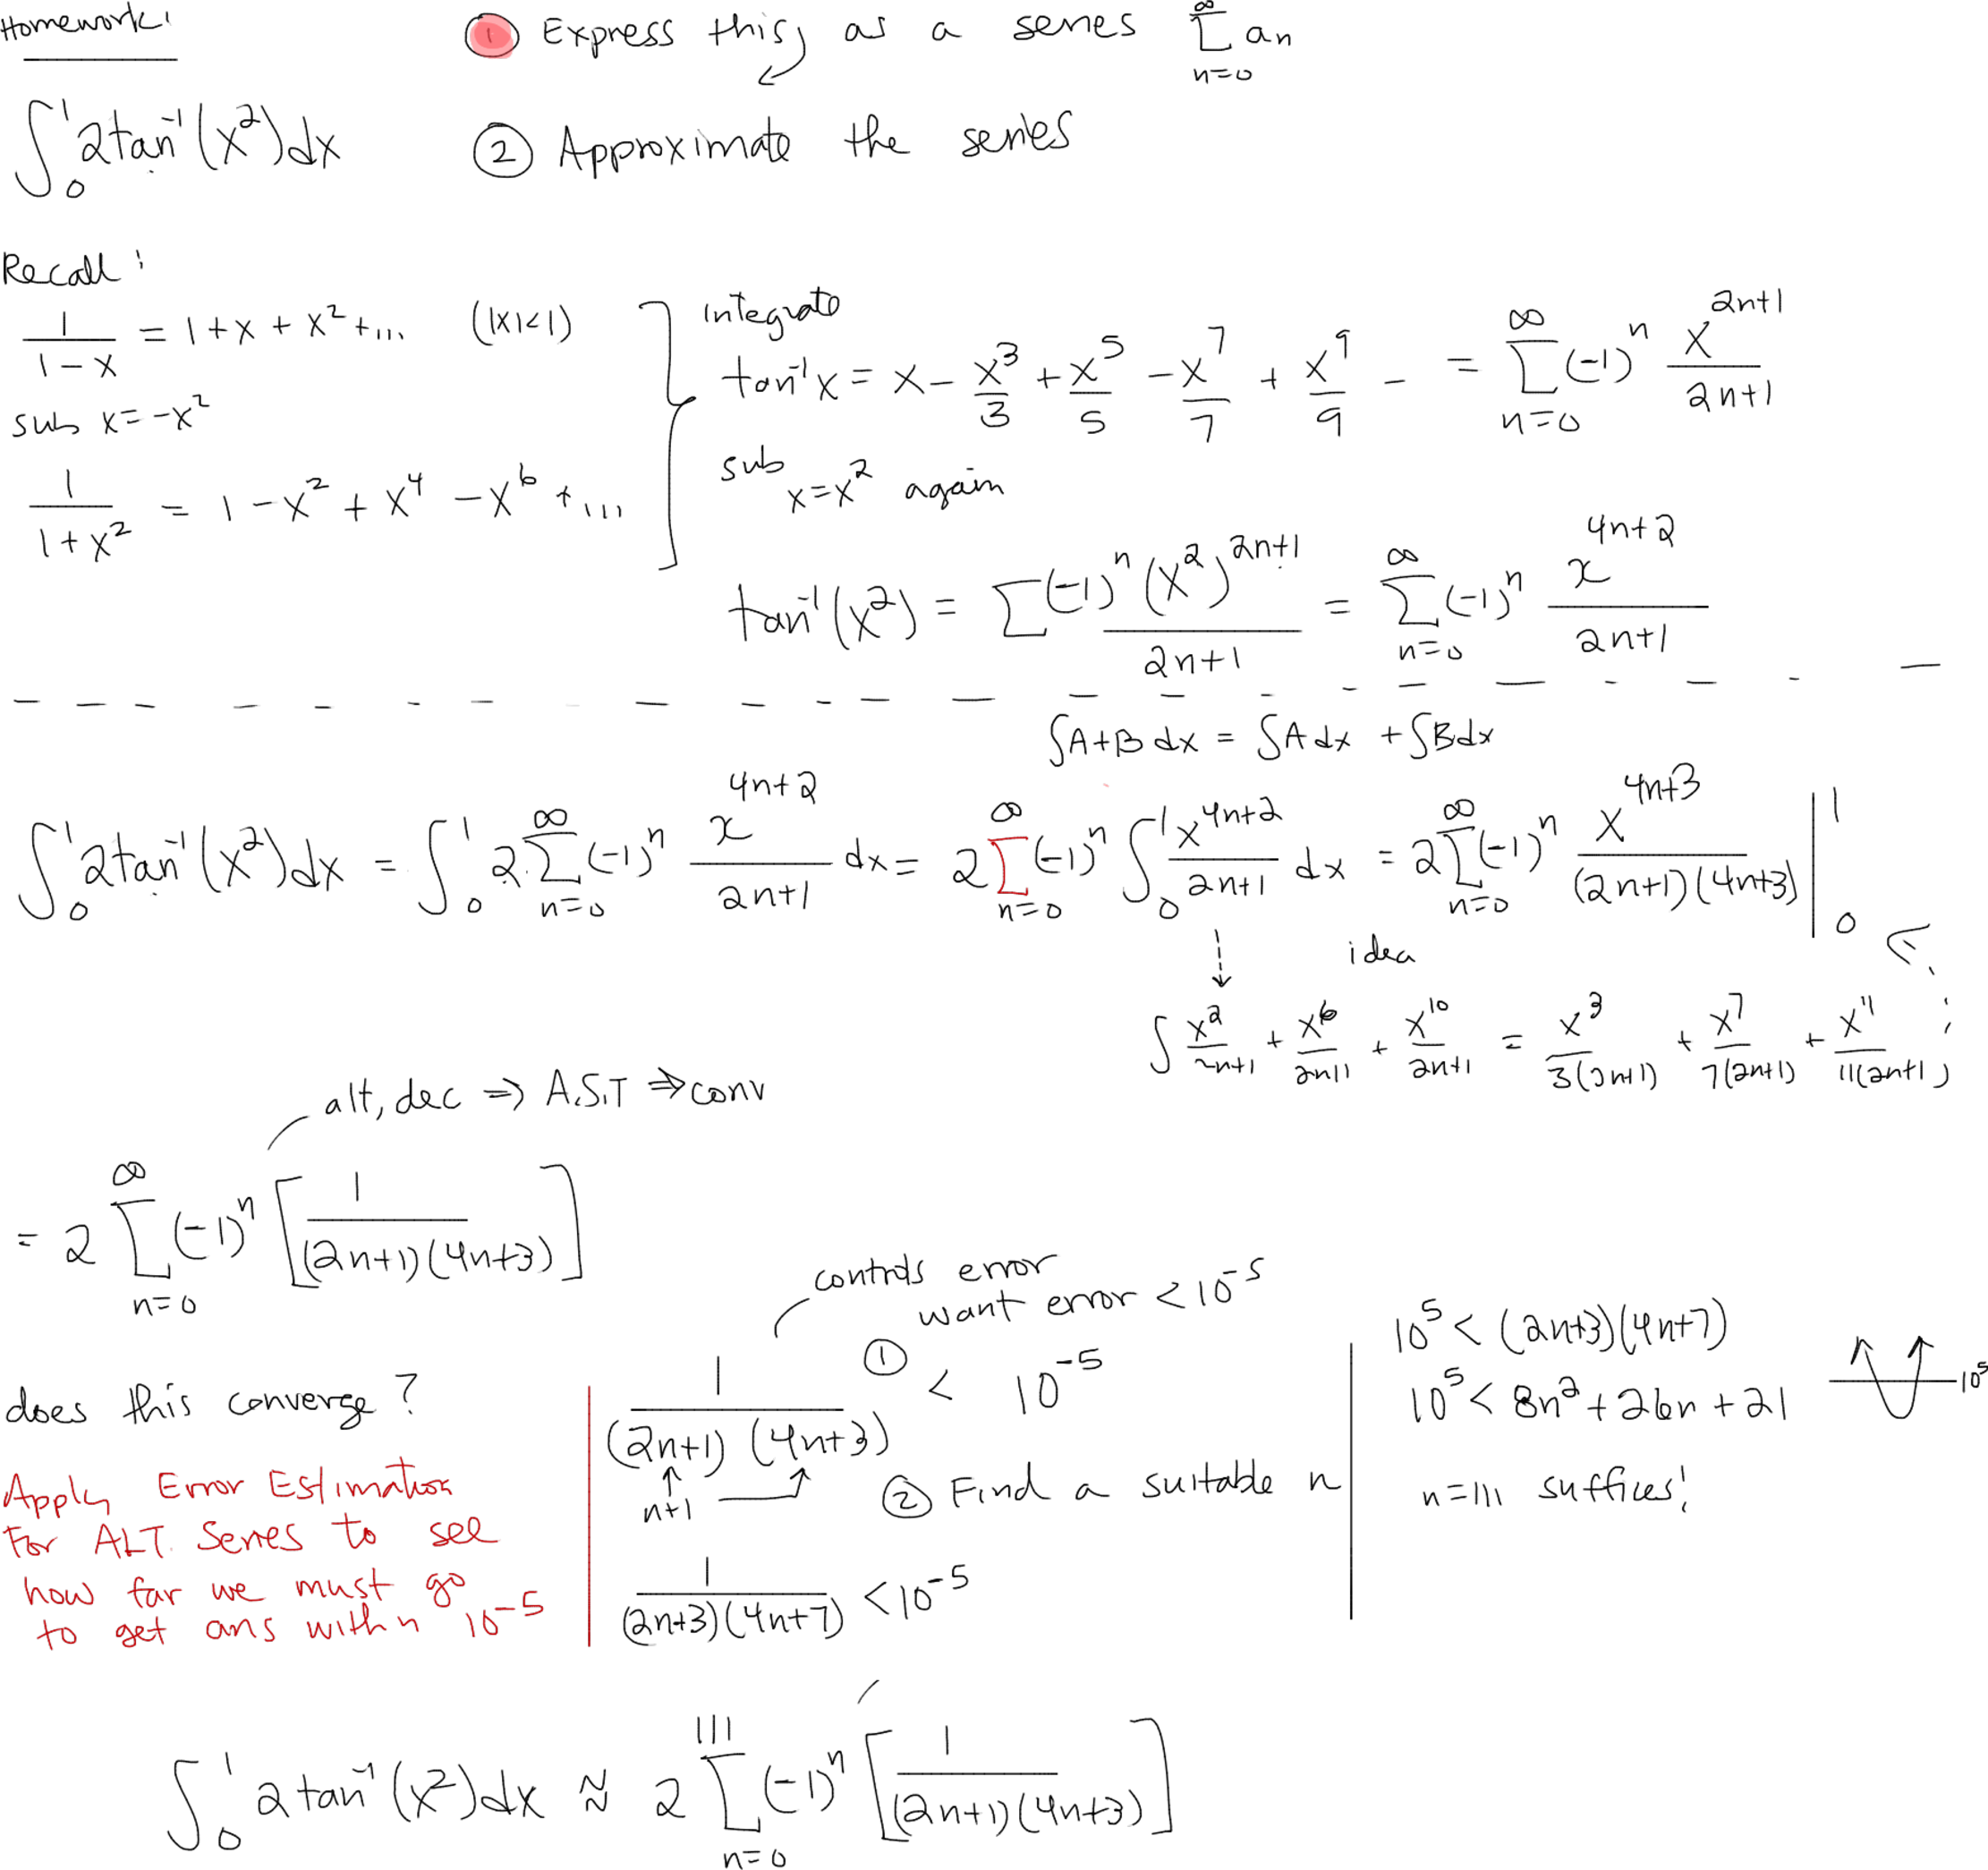 Homework:
① Express this, as a series ∑_{n=0}^{∞} a_n
∫_0^1 2tan⁻¹(x²)dx
② Approximate the series
Recall:
1/(1-x) = 1+x+x²+... (|x|<1)
sub x=-x²
1/(1+x²) = 1-x²+x⁴-x⁶+...
integrate
tan⁻¹x = x - x³/3 + x⁵/5 - x⁷/7 + x⁹/9 - = ∑_{n=0}^{∞} (-1)ⁿ x^{2n+1}/(2n+1)
sub x=x² again
tan⁻¹(x²) = ∑ (-1)ⁿ (x²)^{2n+1}/(2n+1) = ∑_{n=0}^{∞} (-1)ⁿ x^{4n+2}/(2n+1)
∫A+B dx = ∫A dx + ∫B dx
∫_0^1 2tan⁻¹(x²)dx = ∫_0^1 2∑_{n=0}^{∞} (-1)ⁿ x^{4n+2}/(2n+1) dx = 2∑_{n=0}^{∞} (-1)ⁿ ∫_0^1 x^{4n+2}/(2n+1) dx = 2∑_{n=0}^{∞} (-1)ⁿ x^{4n+3}/((2n+1)(4n+3)) |_0^1
idea
∫ x²/(2n+1) + x⁶/(2n+1) + x¹⁰/(2n+1) = x³/(3(2n+1)) + x⁷/(7(2n+1)) + x¹¹/(11(2n+1))
alt, dec ⇒ A.S.T ⇒ conv
= 2 ∑_{n=0}^{∞} (-1)ⁿ [1/((2n+1)(4n+3))]
does this converge?
Apply Error Estimation
For ALT. Series to see
how far we must go
to get ans within 10⁻⁵
controls error
want error < 10⁻⁵
① 1/((2n+1)(4n+3)) < 10⁻⁵
n+1
② Find a suitable n
1/((2n+3)(4n+7)) < 10⁻⁵
10⁵ < (2n+3)(4n+7)
10⁵ < 8n²+26n+21
10⁵
n=111 suffices!
∫_0^1 2tan⁻¹(x²)dx ≈ 2 ∑_{n=0}^{111} (-1)ⁿ [1/((2n+1)(4n+3))]